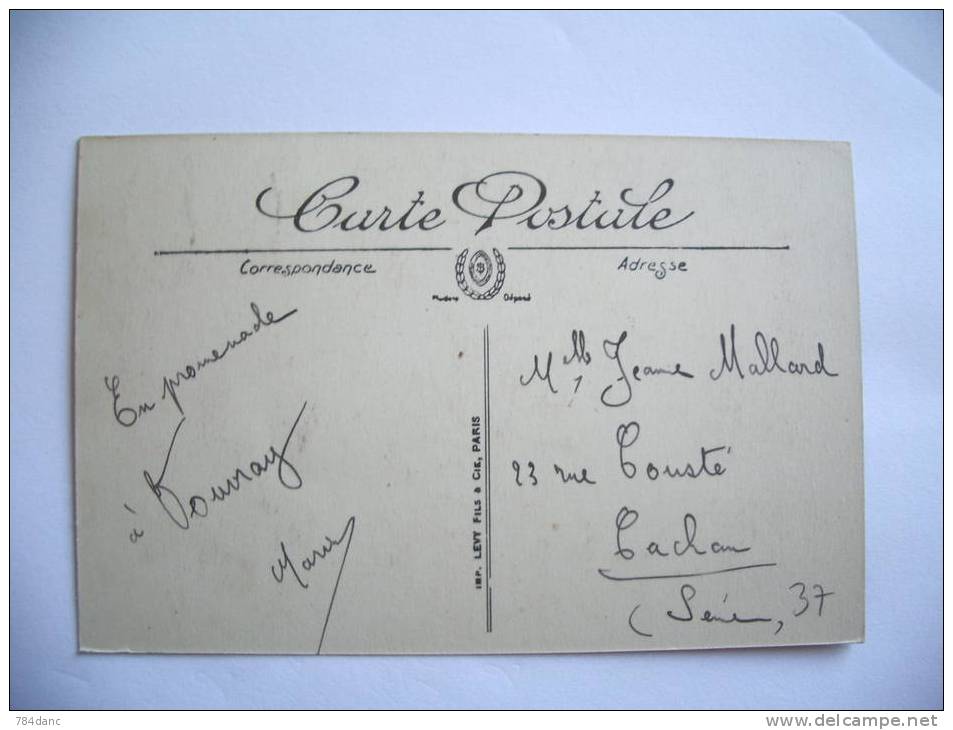 Carte Postale
Correspondance
Adresse
Modèle Déposé
En promenade
à Vouvray
Marie
IMP. LEVY FILS & CIE, PARIS
Mlle Jeanne Mallard
23 rue Cousté
Cachan
(Seine, 37
784danc
www.delcampe.net